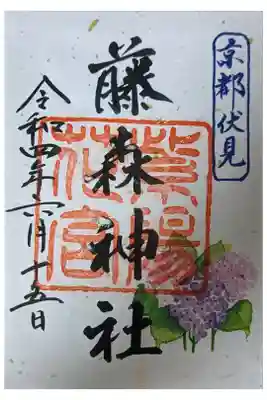 京都伏見
藤森神社
紫陽
花宮
令和四年六月十五日